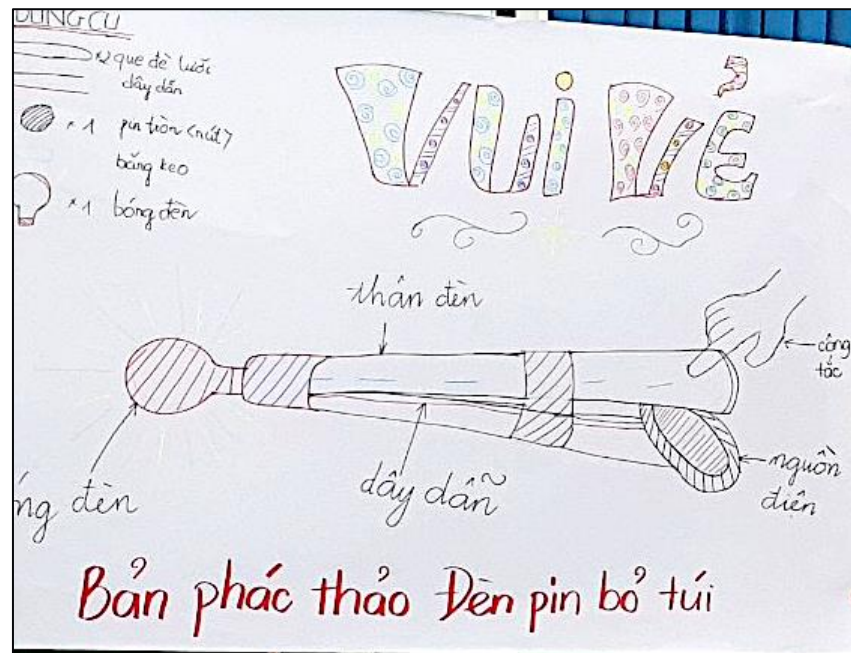 DỤNG CỤ
x2 que đè lưỡi
dây dẫn
x1 pin tròn <nút>
băng keo
x1 bóng đèn
VUI VẺ
thân đèn
công
tắc
ng đèn
dây dẫn
nguồn
điện
Bản phác thảo Đèn pin bỏ túi